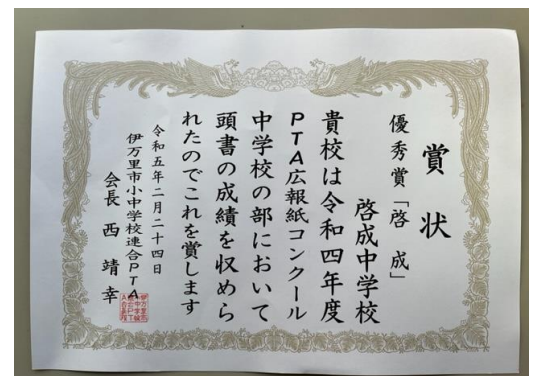 賞状
優秀賞「啓成」
啓成中学校
貴校は令和四年度
PTA広報紙コンクール
中学校の部において
頭書の成績を収めら
れたのでこれを賞します
令和五年二月二十四日
伊万里市小中学校連合PTA
会長 西 靖幸